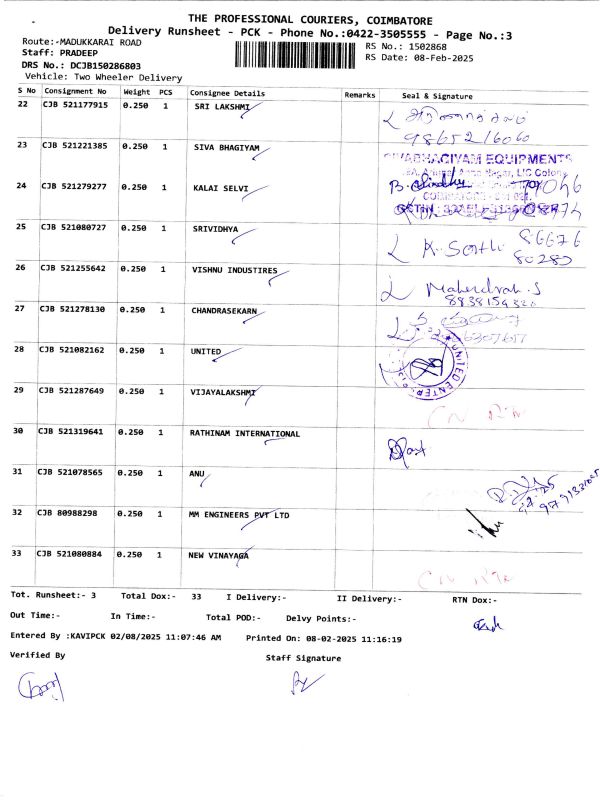 THE PROFESSIONAL COURIERS, COIMBATORE
Delivery Runsheet - PCK - Phone No.:0422-3505555 - Page No.:3
Route:-MADUKKARAI ROAD
RS No.: 1502868
Staff: PRADEEP
RS Date: 08-Feb-2025
DRS No.: DCJB150286803
Vehicle: Two Wheeler Delivery
S No Consignment No Weight PCS Consignee Details Remarks Seal & Signature
22 CJB 521177915 0.250 1 SRI LAKSHMI
9865216060
23 CJB 521221385 0.250 1 SIVA BHAGIYAM
SIVABHAGIYAM EQUIPMENTS
LIC Colony
24 CJB 521279277 0.250 1 KALAI SELVI
B. Sindhu
25 CJB 521080727 0.250 1 SRIVIDHYA
86676
80280
26 CJB 521255642 0.250 1 VISHNU INDUSTIRES
Mahendran.S
27 CJB 521278130 0.250 1 CHANDRASEKARN
28 CJB 521082162 0.250 1 UNITED
UNITED ENTER
29 CJB 521287649 0.250 1 VIJAYALAKSHMI
30 CJB 521319641 0.250 1 RATHINAM INTERNATIONAL
31 CJB 521078565 0.250 1 ANU
32 CJB 80988298 0.250 1 MM ENGINEERS PVT LTD
33 CJB 521080884 0.250 1 NEW VINAYAGA
Tot. Runsheet:- 3 Total Dox:- 33 I Delivery:- II Delivery:- RTN Dox:-
Out Time:- In Time:- Total POD:- Delvy Points:-
Entered By :KAVIPCK 02/08/2025 11:07:46 AM Printed On: 08-02-2025 11:16:19
Verified By Staff Signature